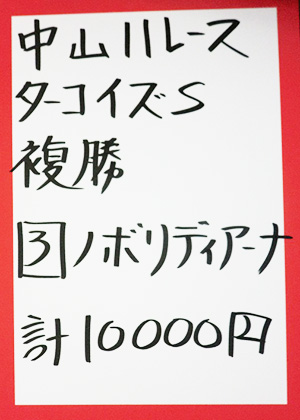 中山11レース
ターコイズS
複勝
3 ノボリディアーナ
計10000円